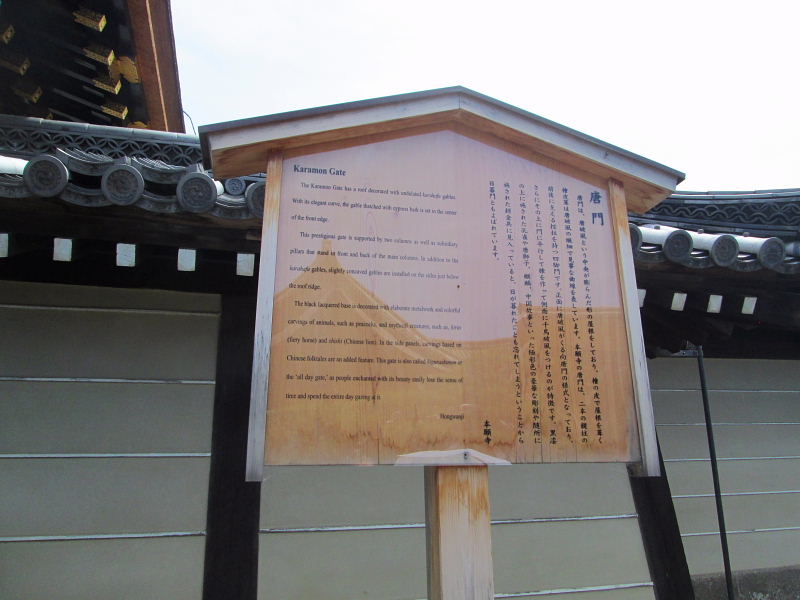 Karamon Gate
The Karamon Gate has a roof decorated with undulated karahafu gables.
With its elegant curve, the gable thatched with cypress bark is set in the center
of the front edge.
This prestigious gate is supported by two columns as well as subsidiary
pillars that stand in front and back of the main columns. In addition to the
karahafu gables, slightly concaved gables are installed on the sides just below
the roof ridge.
The black lacquered base is decorated with elaborate metalwork and colorful
carvings of animals, such as peacocks, and mythical creatures, such as, kirin
(fiery horse) and shishi (Chinese lion). In the side panels, carvings based on
Chinese folktales are an added feature. This gate is also called Higurashimon or
the 'all day gate,' as people enchanted with its beauty easily lose the sense of
time and spend the entire day gazing at it.
Hongwanji
唐門
唐門は、唐破風という中央が膨らんだ形の屋根をしており、檜の皮で屋根を葺く
檜皮葺は唐破風の繊細で見事な曲線を表しています。本願寺の唐門は、二本の親柱の
前後に支える控柱を持つ四脚門です。正面に唐破風がくる向唐門の様式となっており、
さらにその上に門に平行して棟を作って側面に千鳥破風をつけるのが特徴です。黒漆
の上に施された孔雀や唐獅子、麒麟、中国故事といった極彩色の豪華な彫刻や随所に
施された錺金具に見入っていると、日が暮れたことも忘れてしまうということから
日暮門ともよばれています。
本願寺